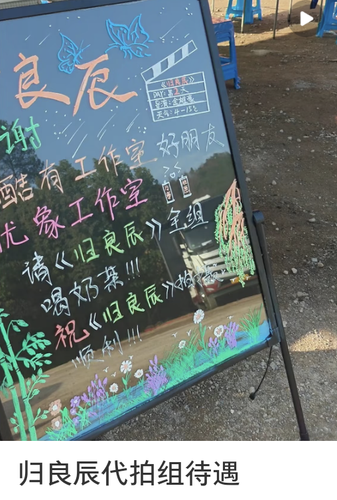 良辰
《归良辰》
谢
酷有工作室 好朋友
优象工作室
请《归良辰》全组
喝奶茶!!!
祝《归良辰》拍摄
顺利!!!
归良辰代拍组待遇